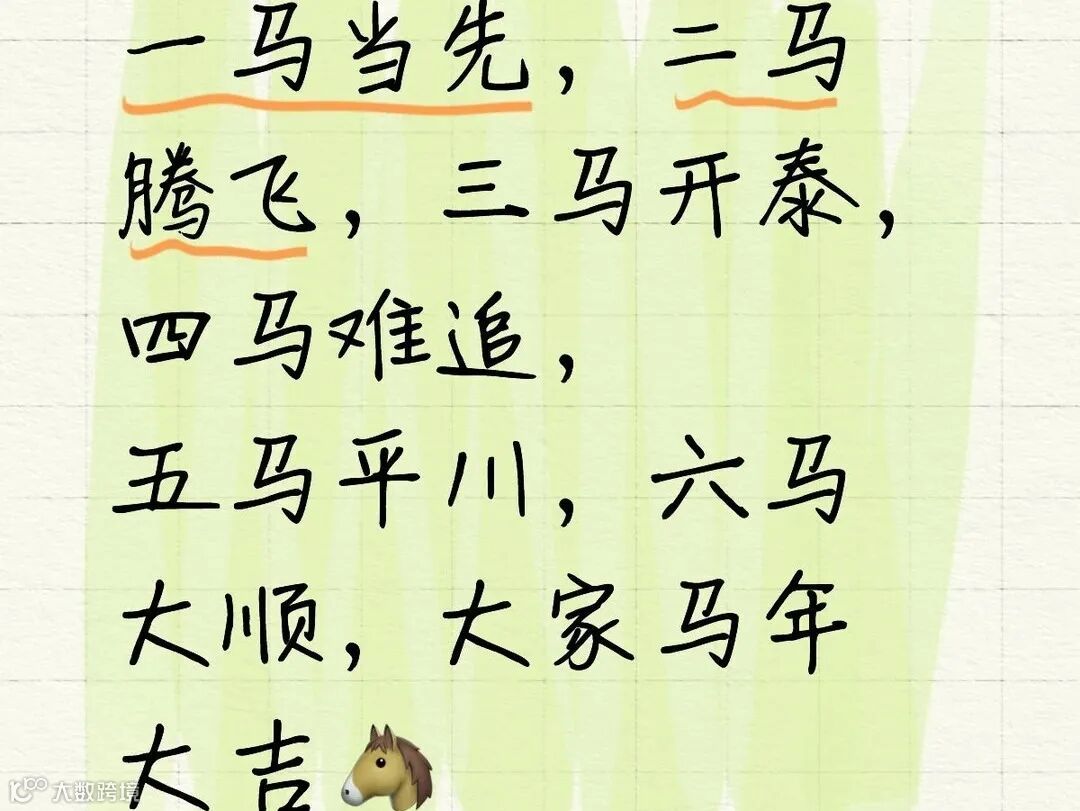 一马当先，二马
腾飞，三马开泰，
四马难追，
五马平川，六马
大顺，大家马年
大吉🐴
大数跨境